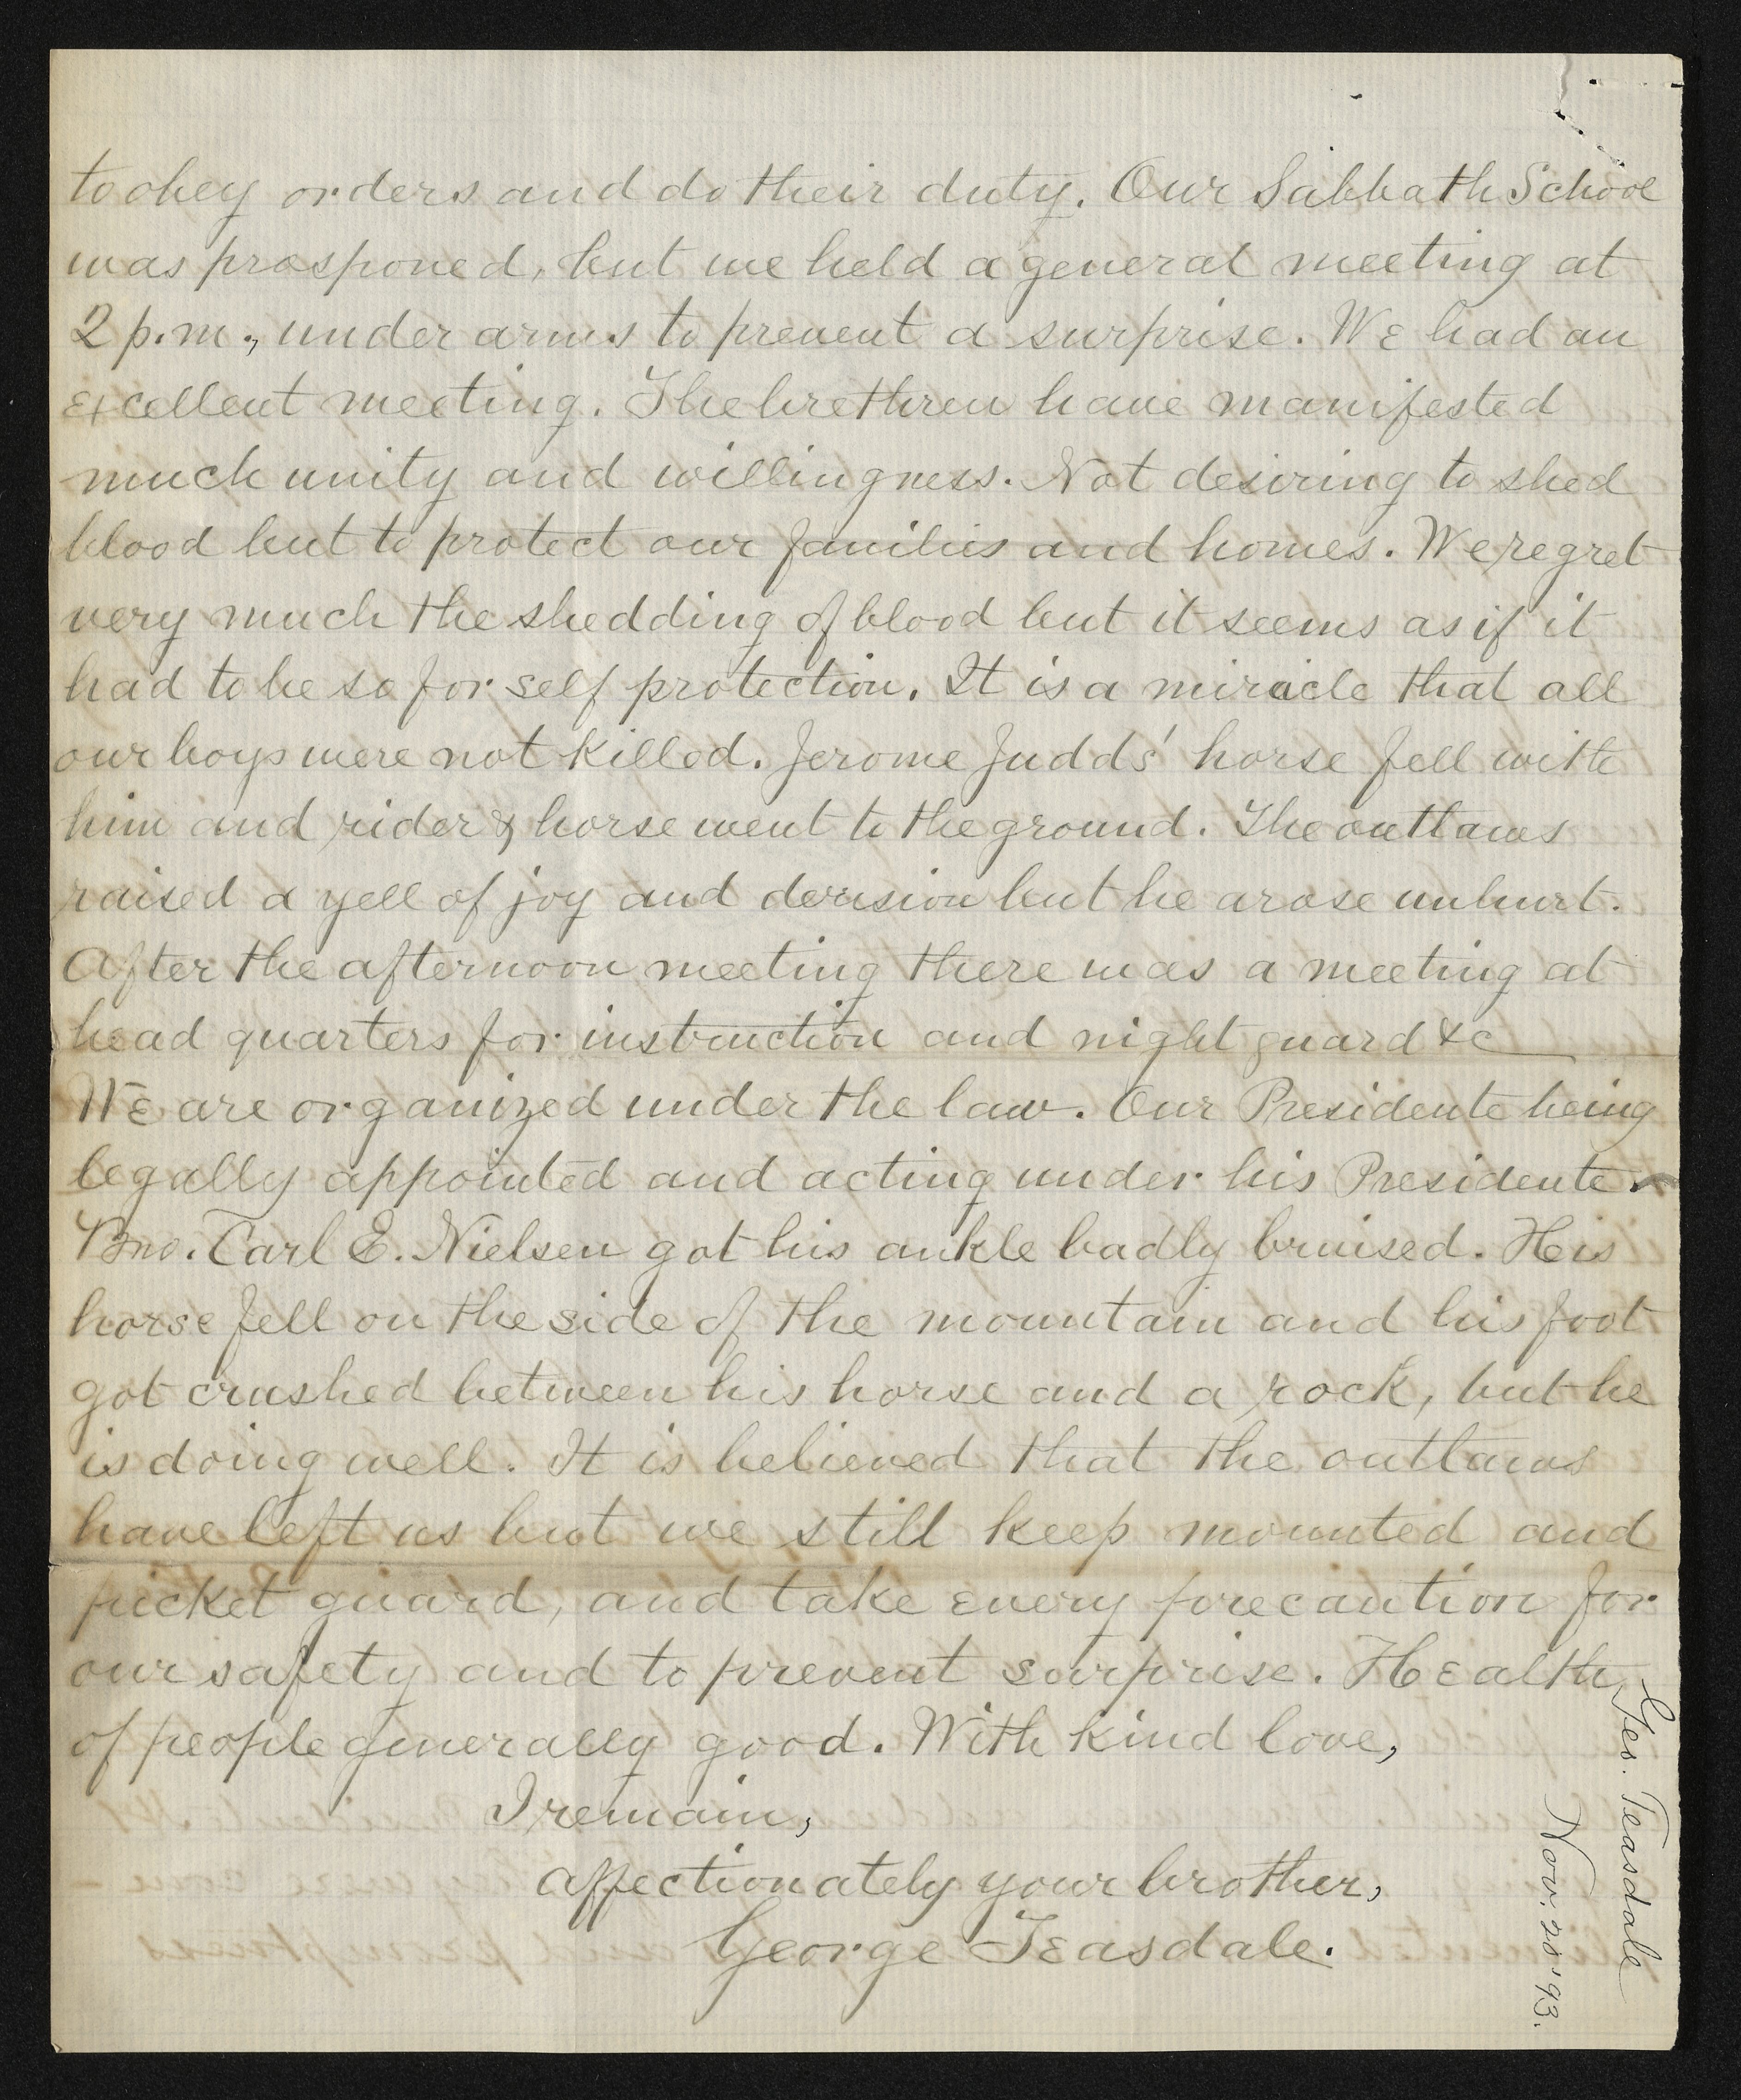 to obey orders and do their duty. Our Sabbath School
was prosponed, but we held a general meeting at
2 p.m., under arms to prevent a surprise. We had an
excellent meeting. The brethren have manifested
much unity and willingness. Not desiring to shed
blood but to protect our families and homes. We regret
very much the shedding of blood but it seems as if it
had to be so for self protection. It is a miracle that all
our boys were not killed. Jerome Judds' horse fell with
him and rider & horse went to the ground. The outlaws
raised a yell of joy and derision but he arose unhurt.
After the afternoon meeting there was a meeting at
head quarters for instruction and night guard &c
We are organized under the law. Our Presidente being
legally appointed and acting under his Presidente.
Bro. Carl E. Nielsen got his ankle badly bruised. His
horse fell on the side of the mountain and his foot
got crushed between his horse and a rock, but he
is doing well. It is believed that the outlaws
have left us but we still keep mounted and
picket guard, and take every precaution for
our safety and to prevent surprise. Health
of people generally good. With kind love,
I remain,
affectionately your brother,
George Teasdale.
Geo. Teasdale
Nov. 20 '93.